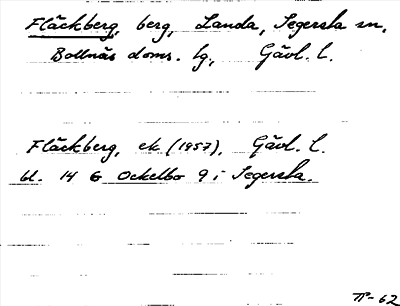 Fläckberg, berg, Landa, Segersta sn,
Bollnäs doms. lg., Gävl. l.
Fläckberg, ek. (1957), Gävl. l.
bl. 14 G Ockelbo 9 i Segersta.
TP-62